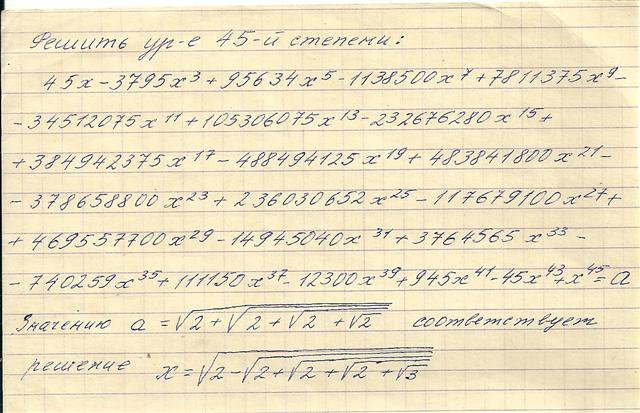 Решить ур-е 45-й степени:
45x - 3795x³ + 95634x⁵ - 1138500x⁷ + 7811375x⁹ -
- 34512075x¹¹ + 105306075x¹³ - 232676280x¹⁵ +
+ 384942375x¹⁷ - 488494125x¹⁹ + 483841800x²¹ -
- 378658800x²³ + 236030652x²⁵ - 117679100x²⁷ +
+ 469557700x²⁹ - 14945040x³¹ + 3764565x³³ -
- 740259x³⁵ + 111150x³⁷ - 12300x³⁹ + 945x⁴¹ - 45x⁴³ + x⁴⁵ = a
Значению a = √(2 + √(2 + √(2 + √2))) соответствует
решение x = √(2 - √(2 + √(2 + √(2 + √3))))